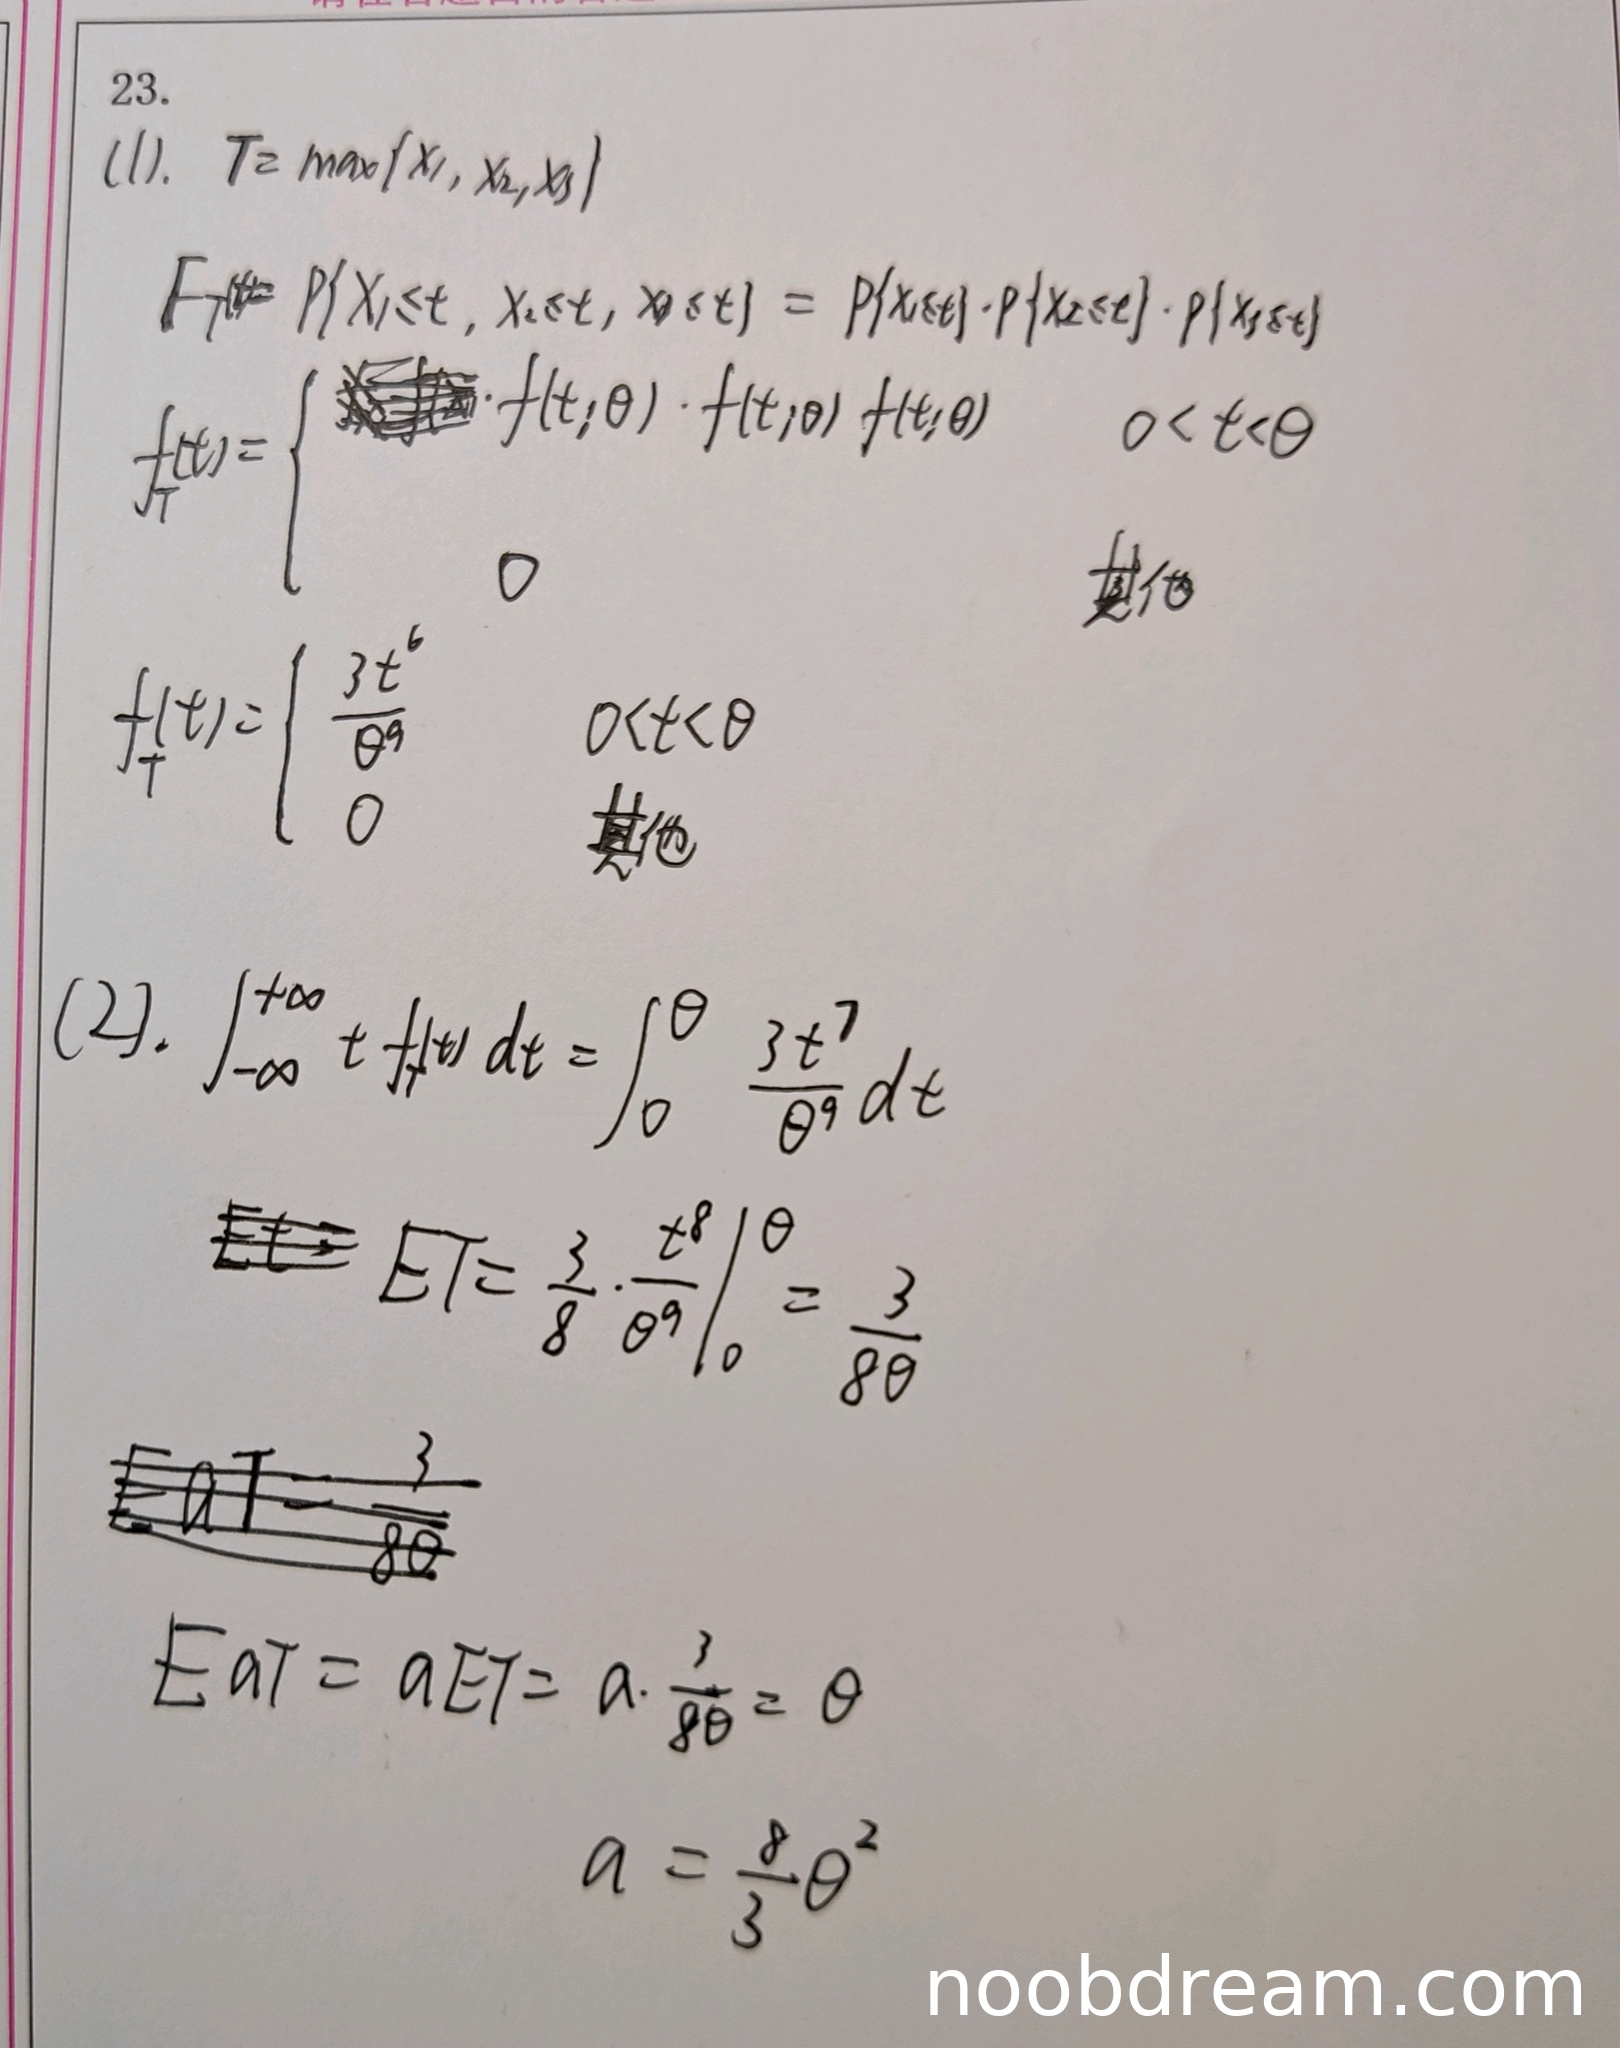 23.
(1). T= max{x₁, x₂, x₃}
F_T(t)= P{X₁≤t, X₂≤t, X₃≤t} = P{X₁≤t}·P{X₂≤t}·P{X₃≤t}
f_T(t)= { ·f(t;θ)·f(t;θ) f(t;θ) 0<t<θ
0 其他
f_T(t)= { 3t⁶/θ⁹ 0<t<θ
0 其他
(2). ∫_{-∞}^{+∞} t f_T(t) dt = ∫_0^θ 3t⁷/θ⁹ dt
ET= 3/8 · t⁸/θ⁹ |_0^θ = 3/8θ
EaT= 3/8θ
EaT = aET= a·3/8θ = θ
a = 8/3 θ²
noobdream.com